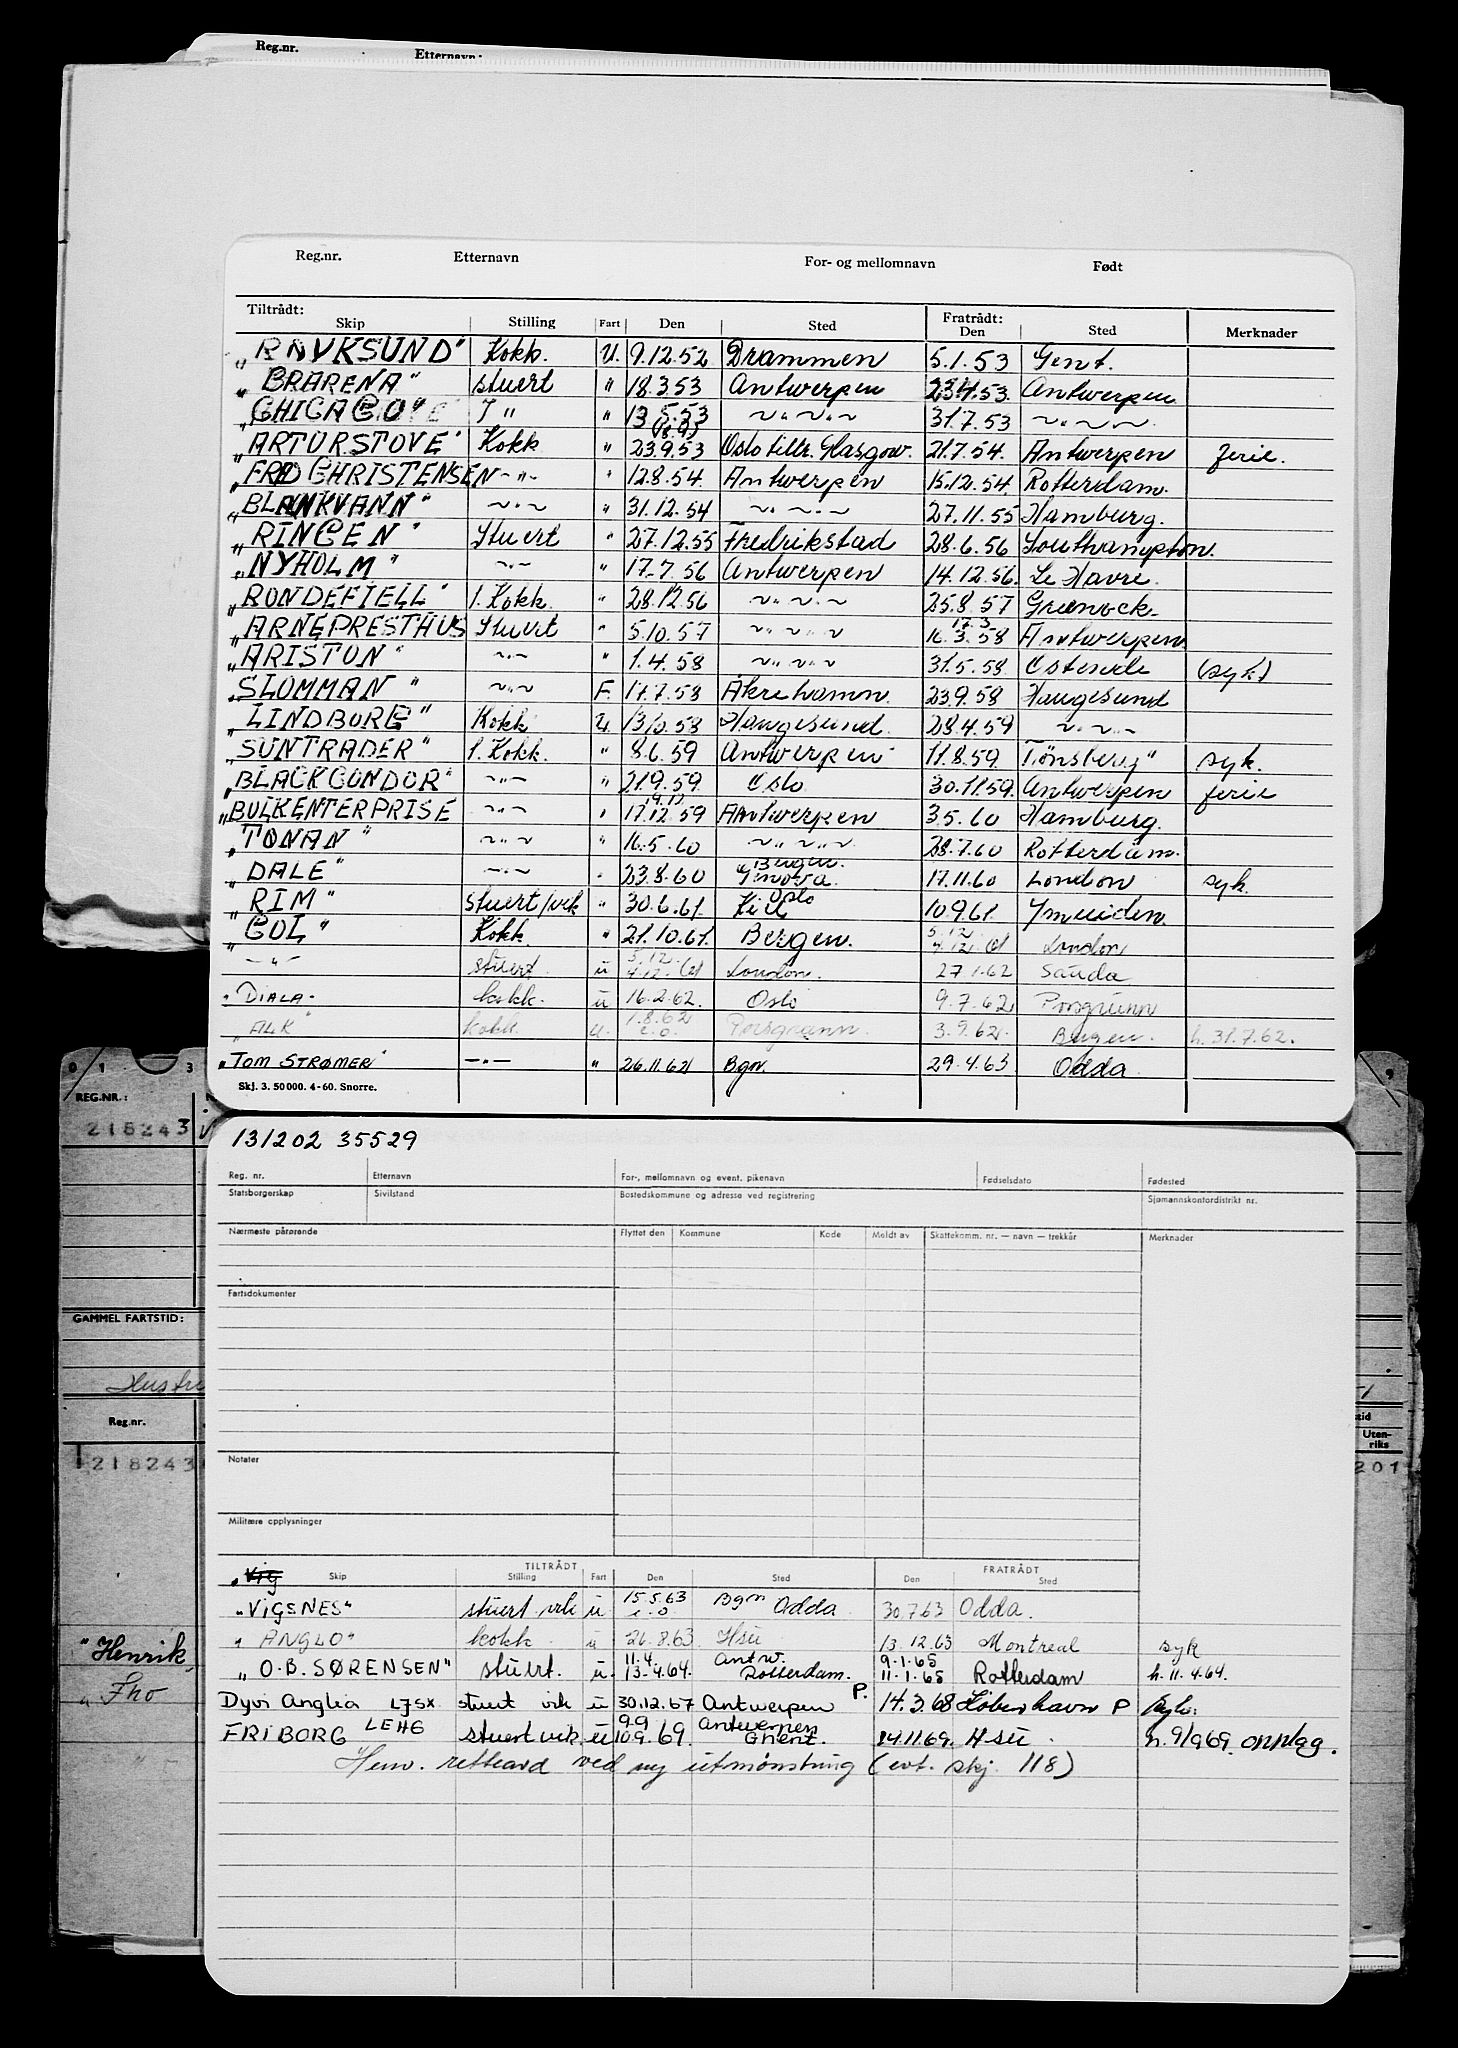 Reg.nr. Etternavn:
Reg.nr. Etternavn For- og mellomnavn Født
Tiltrådt: Fratrådt:
Skip Stilling Fart Den Sted Den Sted Merknader
„RAVKSUND" Kokk. U. 9.12.52 Drammen 5.1.53 Gent.
„BRARENA" stuert " 18.3.53 Antwerpen 23.4.53. Antwerpen
„CHICAGO" I " " 13.5.53 ~"~"~ 31.7.53 ~"~"~
„ARTURSTOVE" Kokk " 23.9.53 Oslo tiltr. Glasgow. 21.7.54. Antwerpen ferie.
„FRED CHRISTENSEN ~"~ " 12.8.54. Antwerpen 15.12.54. Rotterdam.
„BLANKVANN" ~"~ " 31.12.54 ~"~"~ 27.11.55 Hamburg.
„RINGEN" Stuert " 27.12.55 Fredrikstad 28.6.56 Southampton.
„NYHOLM" ~"~ " 17.7.56 Antwerpen 14.12.56. Le Havre.
„RONDEFJELL" 1. Kokk. " 28.12.56 ~"~"~ 25.8.57 Greenock.
17.3
„ARNEPRESTHUS Stuert " 5.10.57 ~"~"~ 16.3.58 Antwerpen
„ARISTON" ~"~ " 1.4.58 ~"~"~ 31.5.58 Ostende (syk)
„SLOMMAN" ~"~ F. 17.7.58 Åkrehamn. 23.9.58 Haugesund
„LINDBORG" Kokk U. 13/10.58 Haugesund. 28.4.59 ~"~"~
„SUNTRADER" 1. Kokk. " 8.6.59 Antwerpen 11.8.59. Tønsberg" syk.
„BLACK CONDOR" ~"~ " 21.9.59. Oslo 30.11.59. Antwerpen ferie
„BULKENTERPRISE ~"~ " 17.12.59 Antwerpen 3.5.60 Hamburg.
„TONAN" ~"~ " 16.5.60 ~"~"~ 28.7.60 Rotterdam.
Bergen.
„DALE" ~"~ " 23.8.60 Genova. 17.11.60 London syk.
Oslo
„RIM" stuert/vik " 30.6.61. Kiel 10.9.61 Ymuiden.
5.12
„GOL" Kokk. " 21.10.61. Bergen. 4.12.61 London
5.12.
~"~ stuert. u 4.12.61 London. 27.1.62 Sauda
"DIALA" kokk. u 16.2.62. Oslo 9.7.62 Porsgrunn
1.8.62
"ALK" kokk. u. e.o. Porsgrunn. 3.9.62. Bergen. h. 31.7.62.
„TOM STRØMER" —"— " 26.11.62 Bgn. 29.4.63 Odda
Skj. 3. 50 000. 4-60. Snorre.
0 1 3 9
REG.NR.:
218243
GAMMEL FARTSTID:
Reg.nr.
218243
Uten-
riks
201
"Henrik
131202 35529
Reg. nr. Etternavn For-, mellomnavn og event. pikenavn Fødselsdato Fødested
Statsborgerskap Sivilstand Bostedskommune og adresse ved registrering Sjømannskontordistrikt nr.
Nærmeste pårørende Flyttet den Kommune Kode Meldt av Skattekomm. nr. — navn — trekkår Merknader
Fartsdokumenter
Notater
Militære opplysninger
TILTRÅDT FRATRÅDT
Vig Skip Stilling Fart Den Sted Den Sted
15.5.63 Bgn
"VIGSNES" stuert vik u e.o. Odda 30.7.63 Odda.
"ANGLO" kokk. u 26.8.63 Hsu 13.12.63 Montreal syk
11.4. Antw. 9.1.65
"O.B. SØRENSEN" stuert. u. 13.4.64. Rotterdam. 11.1.65 Rotterdam h. 11.4.64.
Dyvi Anglia LJSX stuert vik u 30.12.67 Antwerpen P. 14.3.68 København P Syk.
9.9 Antwerpen
FRIBORG LEHG stuert vik. u 10.9.69. Ghent. 14.11.69. Hsu. h. 9/9 69. opplag.
Henv. rettleard ved ny utmønstring (evt. skj. 118)